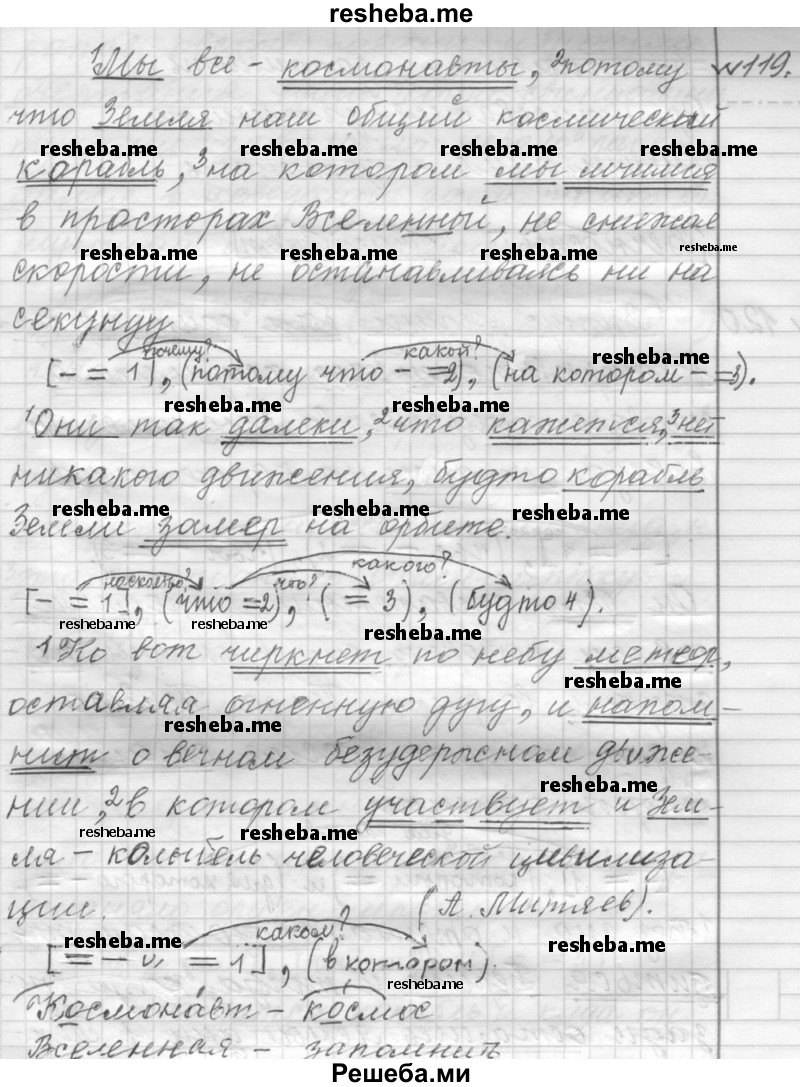 resheba.me
¹Мы все - космонавты, ²потому №119.
что Земля наш общий космический
resheba.me resheba.me resheba.me
корабль, ³на котором мы мчимся
в просторах Вселенный, не снижае
resheba.me resheba.me resheba.me resheba.me
скорости, не останавливаясь ни на
секунду
почему? какой?
resheba.me
[- = 1], (потому что - =2), (на котором - =3).
resheba.me resheba.me
¹Они так далеки, ²что кажется, ³нет
никакого движения, будто корабль
resheba.me resheba.me resheba.me
Земли замер на орбите.
насколько? что? какого?
[- = 1], (что =2), ( = 3), (будто 4).
resheba.me resheba.me resheba.me
1 Но вот чиркнет по небу метеор,
resheba.me
оставляя огненную дугу, и напом-
resheba.me
нит о вечном безудержном движе-
resheba.me
нии, ²в котором участвует и Зем-
resheba.me resheba.me resheba.me
ля - колыбель человеческой цивилиза-
ции. (А. Митяев).
каком?
resheba.me resheba.me
[= - и = 1], (в котором).
resheba.me
Космонáвт - космос
Вселенная - запомнить
Решеба.ми